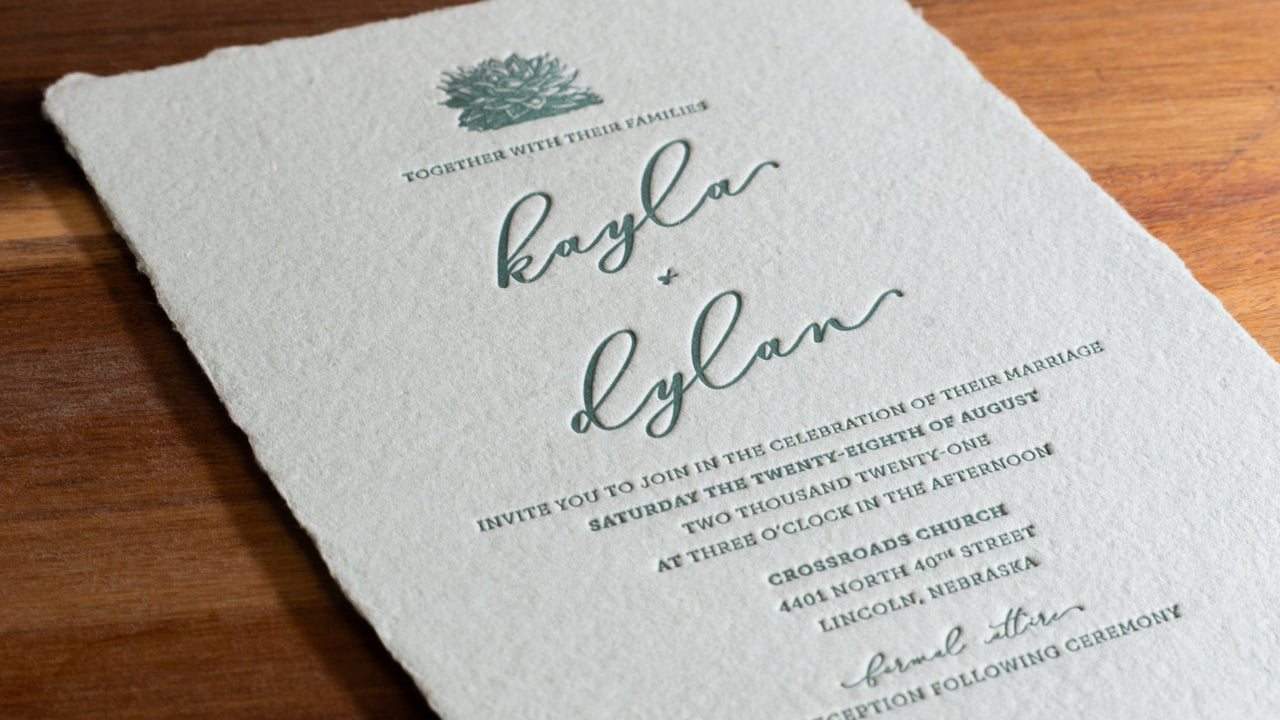 TOGETHER WITH THEIR FAMILIES
kayla
+
dylan
INVITE YOU TO JOIN IN THE CELEBRATION OF THEIR MARRIAGE
SATURDAY THE TWENTY-EIGHTH OF AUGUST
TWO THOUSAND TWENTY-ONE
AT THREE O'CLOCK IN THE AFTERNOON
CROSSROADS CHURCH
4401 NORTH 40TH STREET
LINCOLN, NEBRASKA
formal attire
FOLLOWING CEREMONY